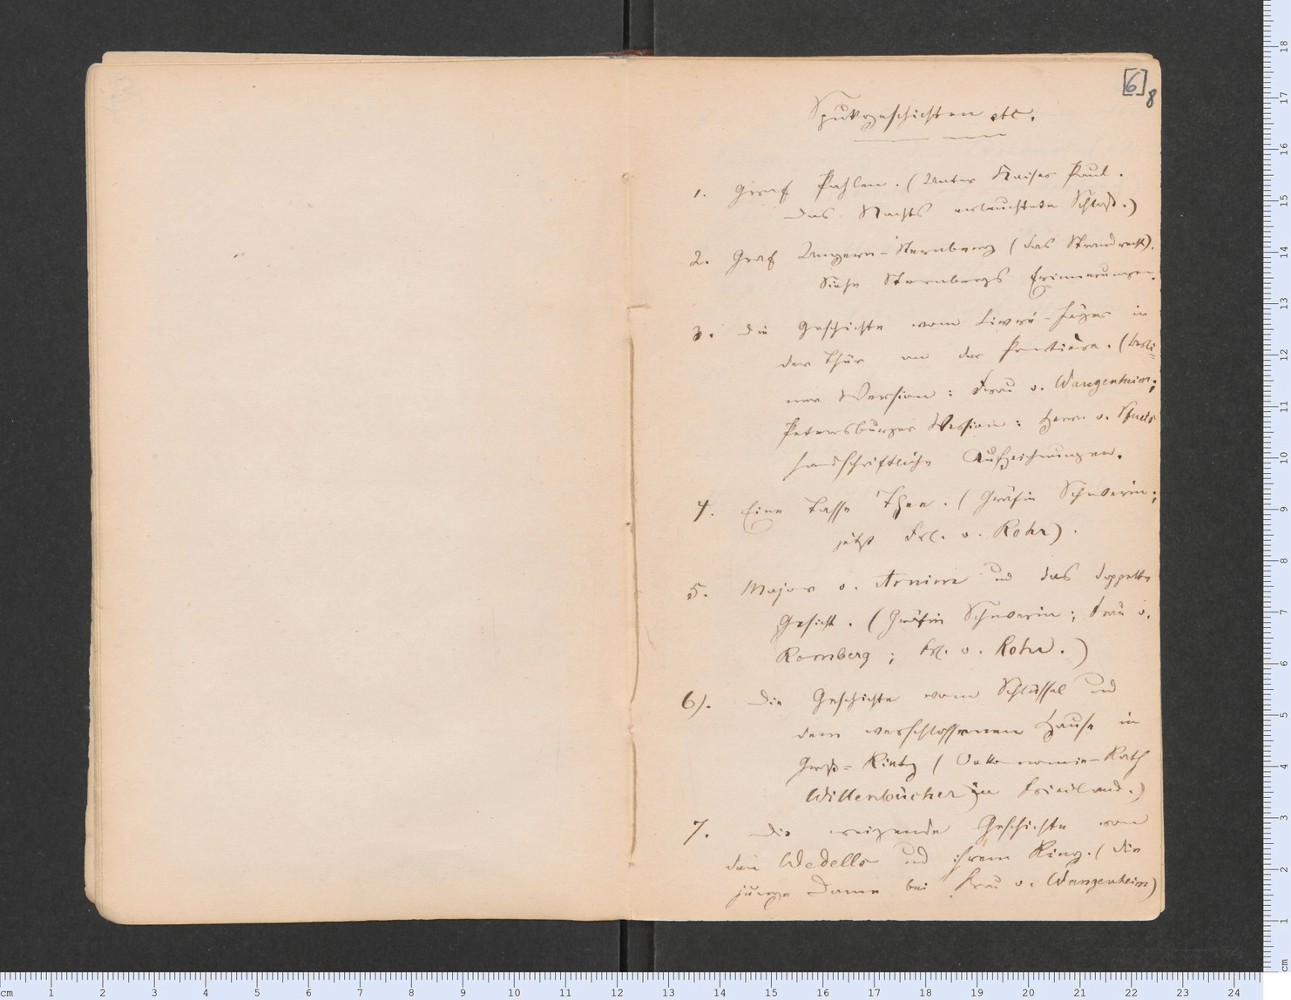 [6] 8
Spukgeschichten etc.
1. Graf Pahlen. (Unter Kaiser Paul.
Das Nachts erleuchtete Schloß.)
2. Graf Ungern-Sternberg (das Strandrecht).
Siehe Sternbergs Erinnerungen.
3. Die Geschichte vom Livré-Jäger in
der Thür an der Portière. (Berli-
ner Version: Frau v. Wangenheim;
Petersburger Version: Herrn v.
handschriftliche Aufzeichnungen.
4. Eine Tasse Thee. (Gräfin Schwerin;
jetzt Frl. v. Rohr).
5. Major v. Arnim und das doppelte
Gesicht. (Gräfin Schwerin; Frau v.
Romberg; Frl. v. Rohr.)
6). Die Geschichte vom Schlüssel und
dem verschlossenen Hause in
Groß-Rietz (Oekonomie-Rath
Willenbücher in Friedland.)
7. Die reizende Geschichte von
den Wedells und ihrem Ring. (Die
junge Dame bei Frau v. Wangenheim)